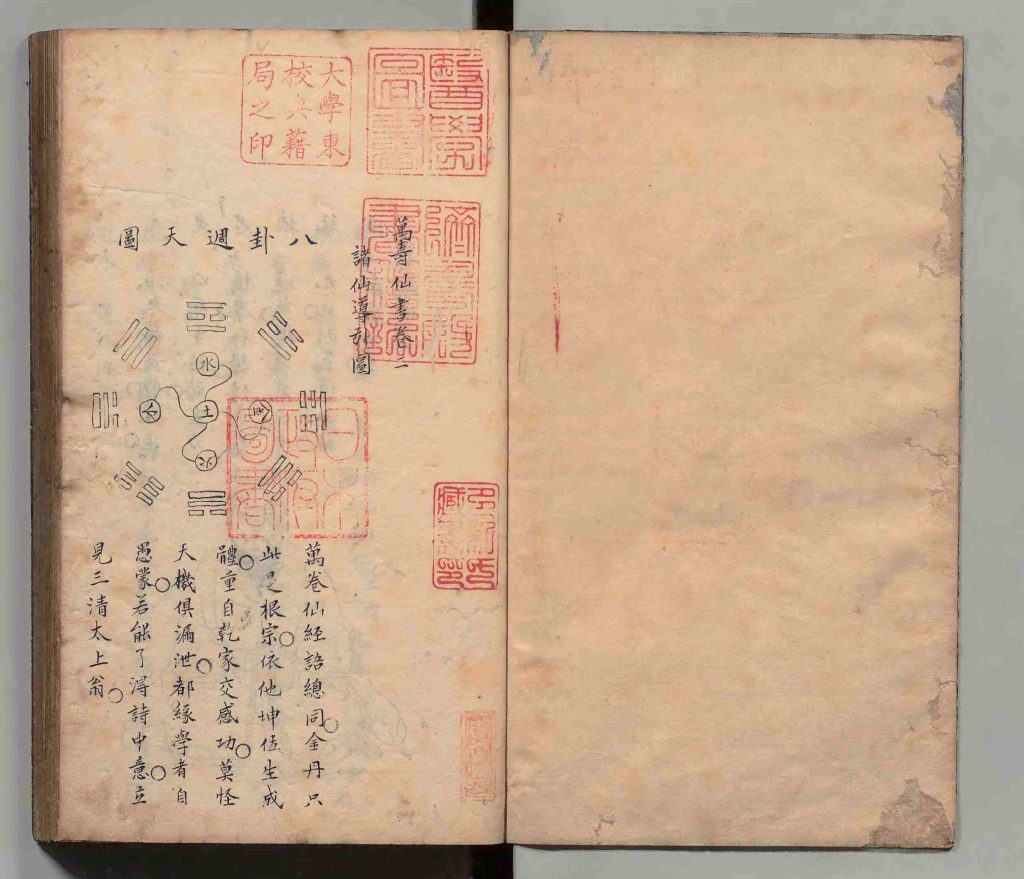 醫學
圖書
大學東
校典藉
局之印
躋壽殿
書籍記
萬壽仙書卷二
諸仙導引圖
八卦週天圖
水
土
金
火
日本
政府
圖書
萬卷仙經語總同金丹只
此是根宗依他坤位生成
體重自乾家交感功莫怪
天機俱漏泄都緣學者自
愚蒙若能了得詩中意立
見三清太上翁